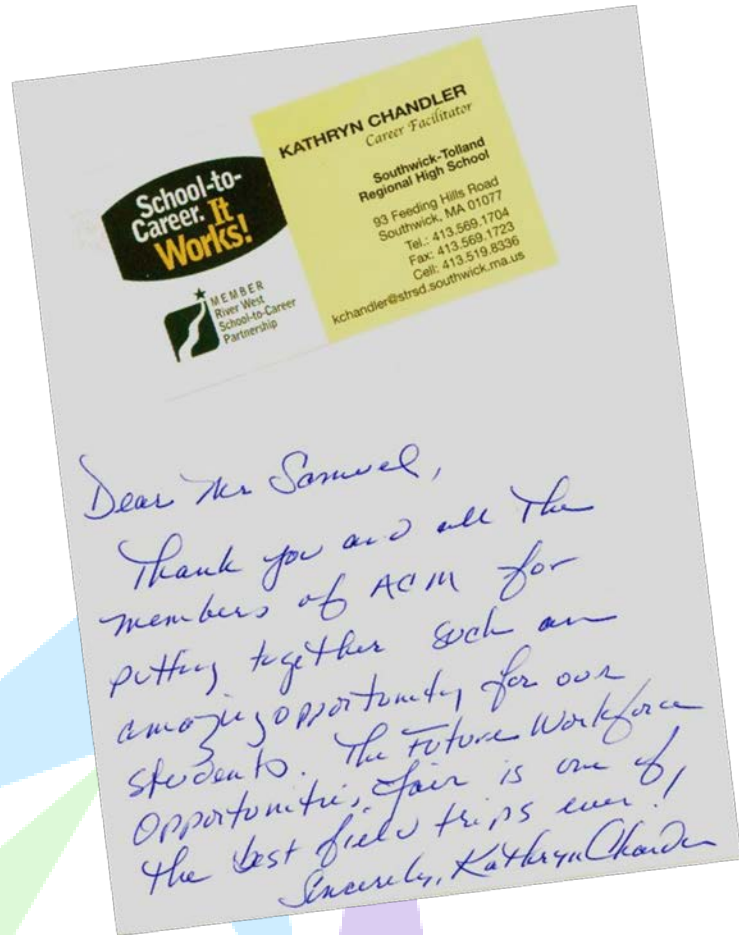 School-to-
Career. It
Works!
MEMBER
River West
School-to-Career
Partnership
KATHRYN CHANDLER
Career Facilitator
Southwick-Tolland
Regional High School
93 Feeding Hills Road
Southwick, MA 01077
Tel.: 413.569.1704
Fax: 413.569.1723
Cell: 413.519.8336
kchandler@strsd.southwick.ma.us
Dear Mr Samuel,
Thank you and all the
members of ACM for
putting together such an
amazing opportunity for our
students. The Future Workforce
Opportunities Fair is one of
the best field trips ever!
Sincerely, Kathryn Chandler